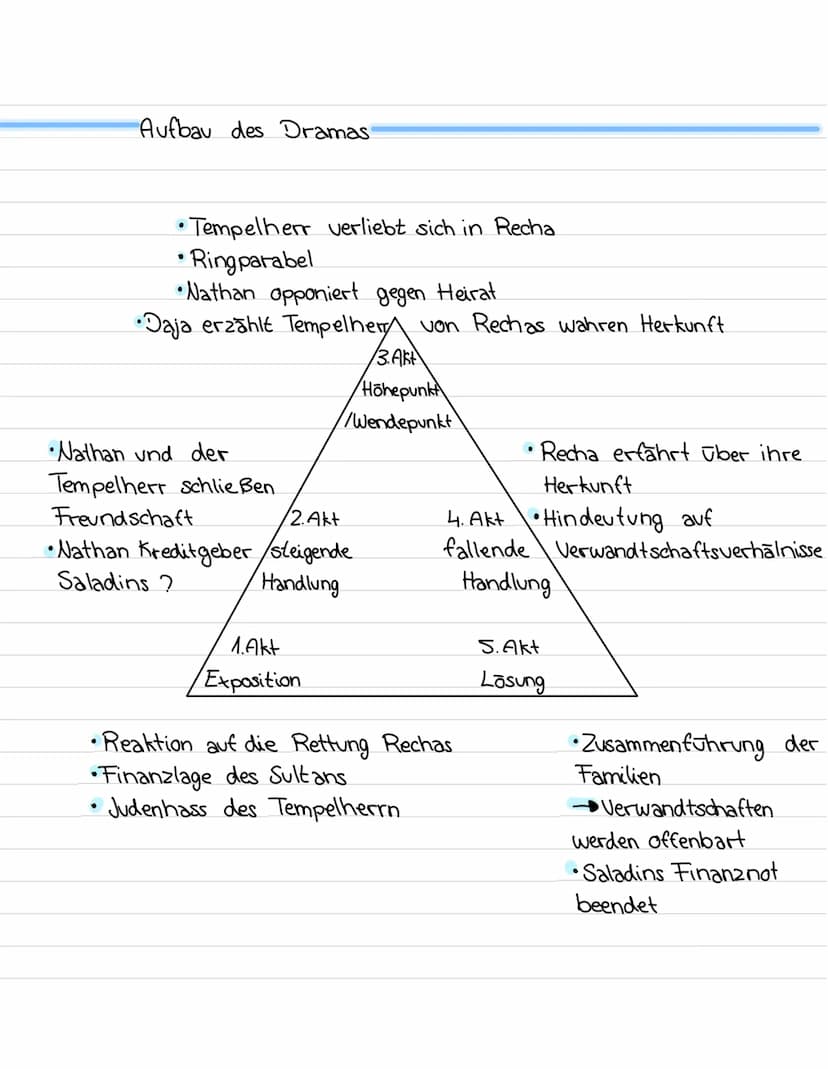 Aufbau des Dramas
• Tempelherr verliebt sich in Recha
• Ringparabel
• Nathan opponiert gegen Heirat
• Daja erzählt Tempelherr von Rechas wahren Herkunft
3. Akt
Höhepunkt
/Wendepunkt
• Nathan und der
Tempelherr schließen
Freundschaft
• Nathan Kreditgeber
Saladins ?
2. Akt
steigende
Handlung
4. Akt
fallende
Handlung
• Recha erfährt über ihre
Herkunft
• Hindeutung auf
Verwandtschaftsverhälnisse
1. Akt
Exposition
5. Akt
Lösung
• Reaktion auf die Rettung Rechas
• Finanzlage des Sultans
• Judenhass des Tempelherrn
• Zusammenführung der
Familien
→ Verwandtschaften
werden offenbart
• Saladins Finanznot
beendet